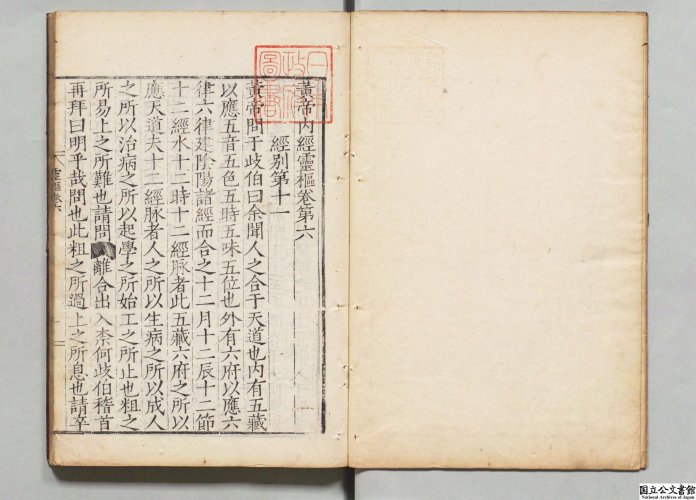 黃帝內經靈樞卷第六
經别第十一
黃帝問于歧伯曰余聞人之合于天道也内有五藏
以應五音五色五時五味五位也外有六府以應六
律六律建陰陽諸經而合之十二月十二辰十二節
十二經水十二時十二經脉者此五藏六府之所以
應天道夫十二經脉者人之所以生病之所以成人
之所以治病之所以起學之所始工之所止也粗之
所易上之所難也請問離合出入柰何歧伯稽首
再拜曰明乎哉問也此粗之所過上之所息也請卒
靈樞卷六
日本
政府
圖書
国立公文書館
National Archives of Japan